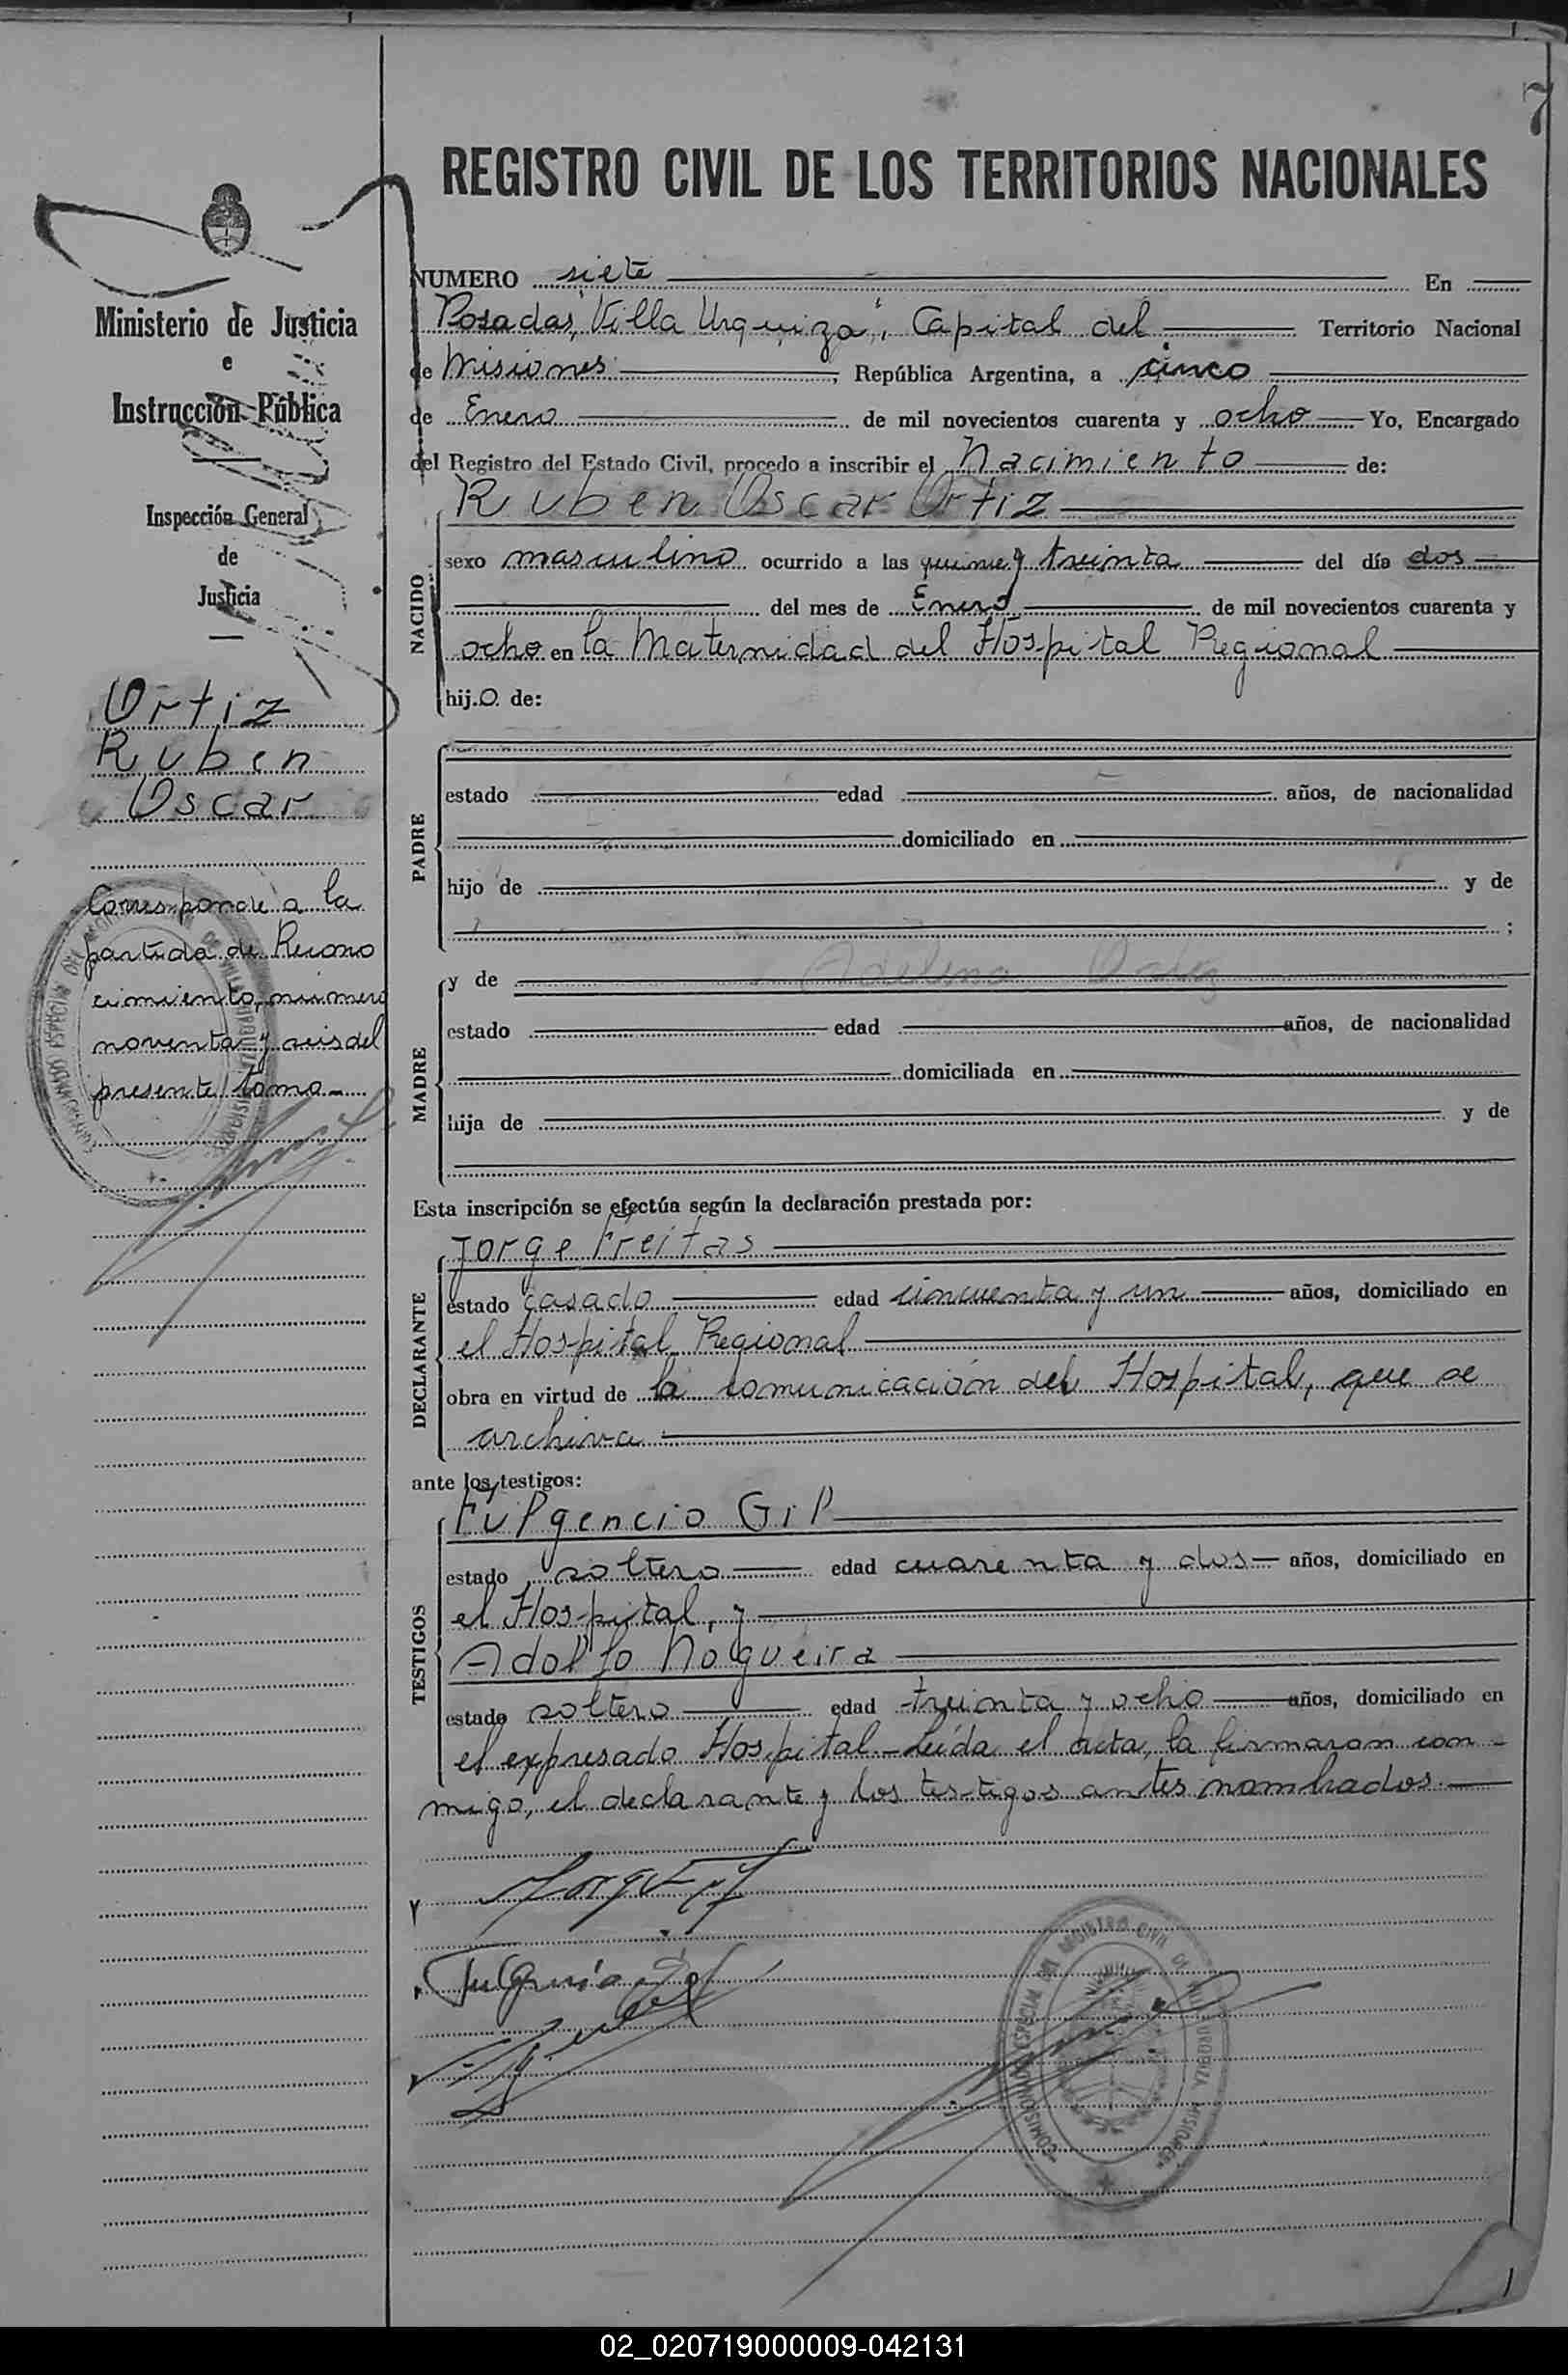 7
REGISTRO CIVIL DE LOS TERRITORIOS NACIONALES
Ministerio de Justicia
e
Instrucción Pública
Inspección General
de
Justicia
Ortiz
Ruben
Oscar
Corresponde a la
partida de Recono
cimiento, numero
noventa y seis del
presente tomo.-
NUMERO siete En
Posadas, "Villa Urquiza", Capital del Territorio Nacional
de Misiones, República Argentina, a cinco
de Enero de mil novecientos cuarenta y ocho Yo, Encargado
del Registro del Estado Civil, procedo a inscribir el Nacimiento de:
NACIDO
Ruben Oscar Ortiz
sexo masculino ocurrido a las quince y treinta del día dos
del mes de Enero de mil novecientos cuarenta y
ocho en la Maternidad del Hospital Regional
hij.o. de:
PADRE
estado edad años, de nacionalidad
domiciliado en
hijo de y de
;
MADRE
y de Adelina Ortiz
estado edad años, de nacionalidad
domiciliada en
hija de y de
Esta inscripción se efectúa según la declaración prestada por:
DECLARANTE
Jorge Freitas
estado casado edad cincuenta y un años, domiciliado en
el Hospital Regional
obra en virtud de la comunicación del Hospital, que se
archiva
ante los testigos:
TESTIGOS
Fulgencio Gil
estado soltero edad cuarenta y dos años, domiciliado en
el Hospital, y
Adolfo Nogueira
estado soltero edad treinta y ocho años, domiciliado en
el expresado Hospital.- Leída el acta, la firmaron con-
migo, el declarante y los testigos antes nombrados.-
COMISIONADO ESPECIAL DEL REGISTRO CIVIL DE VILLA URQUIZA MISIONES
02_020719000009-042131